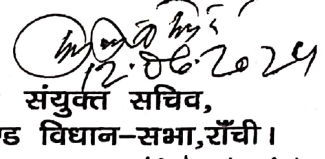 12.06.2024
संयुक्त सचिव,
ण्ड विधान-सभा,राँची।